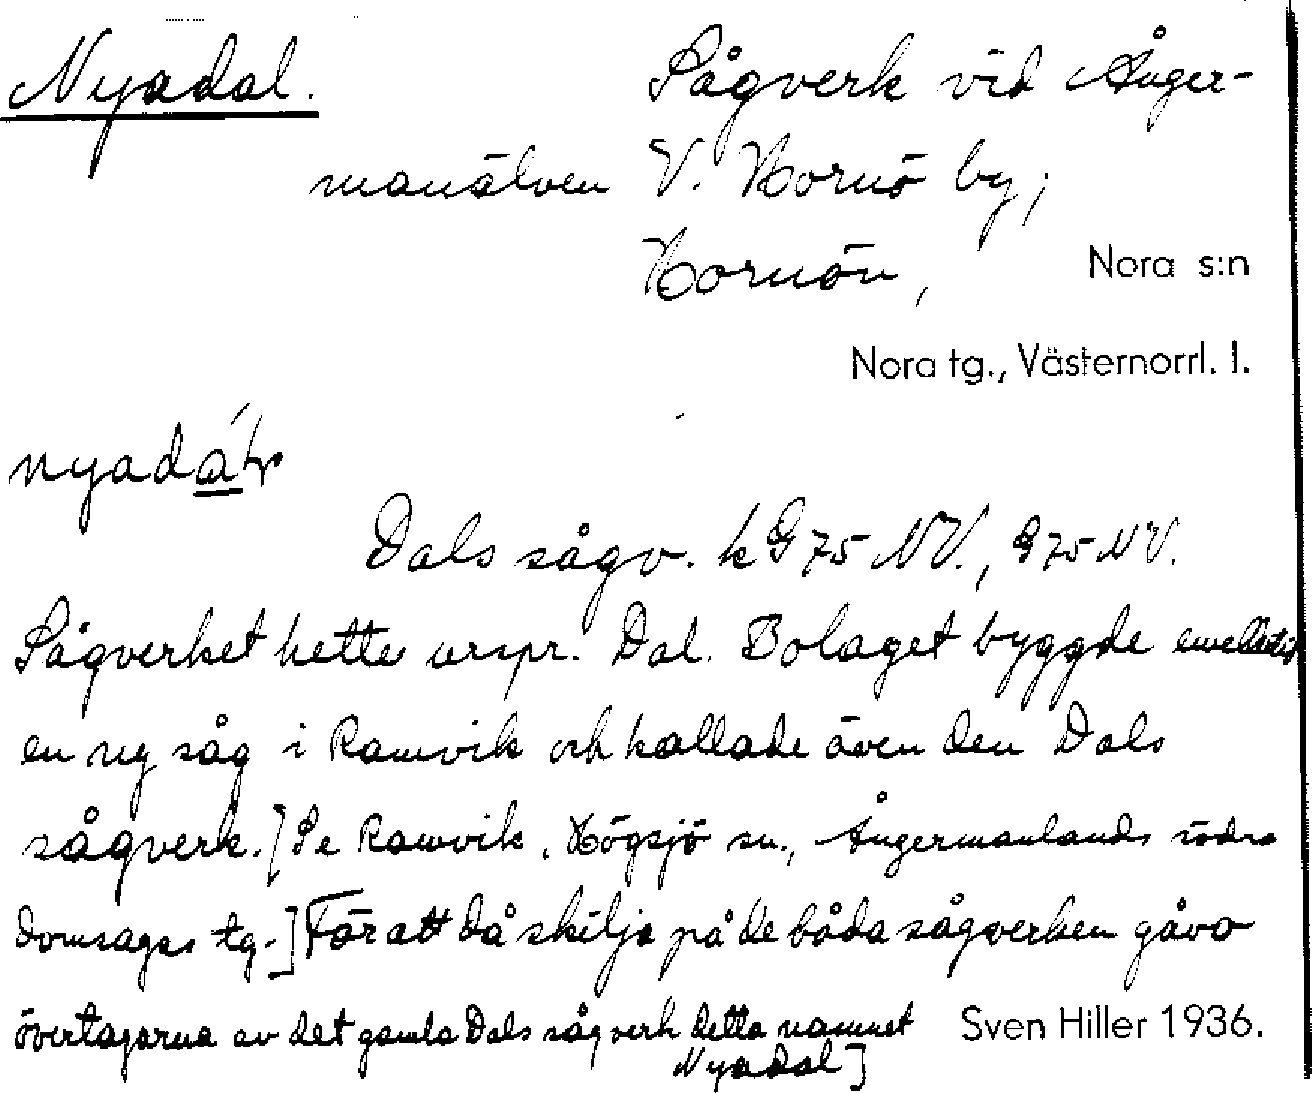 Nyadal. Sågverk vid Ånger-
manälven V. Hornö by;
Hornön, Nora s:n
Nora tg., Västernorrl. l.
Dals sågv. k G 75 NV., G 75 NV.
Sågverket hette urspr. Dal. Bolaget byggde emellertid
en ny såg i Ramvik och kallade även den Dals
sågverk.] Se Ramvik, Högsjö sn., Ångermanlands södra
domsagas tg.] För att då skilja på de båda sågverken gåvo
övertagarna av det gamla Dals sågverk detta namnet
Nyadal]
Sven Hiller 1936.